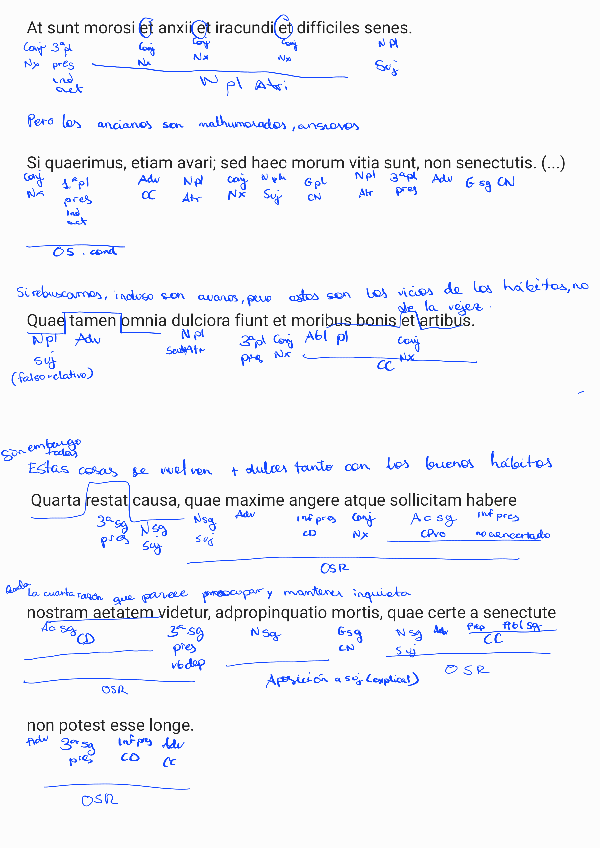 At sunt morosi et anxii et iracundi et difficiles senes.
Conj 3ªpl Conj Conj Conj N pl
Nx pres Nx Nx Nx Suj
ind
act
N pl Atri
Pero los ancianos son malhumorados, ansiosos
Si quaerimus, etiam avari; sed haec morum vitia sunt, non senectutis. (...)
Conj 1ªpl Adv Npl Conj Npl Gpl Npl 3ªpl Adv Gsg CN
Nx pres CC Atr Nx Suj CN Atr pres
ind
act
OS. cond
Si rebuscamos, incluso son avaros, pero estos son los vicios de los hábitos, no
de la vejez.
Quae tamen omnia dulciora fiunt et moribus bonis et artibus.
Npl Adv Npl 3ªpl Conj Abl pl Conj
Suj pres Nx Nx
CC
(falso relativo)
Sin embargo
todas
Estas cosas se vuelven + dulces tanto con los buenos hábitos
Quarta restat causa, quae maxime angere atque sollicitam habere
3ªsg Nsg Nsg Adv Inf pres Conj Acsg Inf pres
pres Suj Suj CD Nx CPvo no concertado
OSR
La cuarta razón que parece preocupar y mantener inquieta
nostram aetatem videtur, adpropinquatio mortis, quae certe a senectute
Acsg 3ªsg Nsg Gsg Nsg Adv Prep Ablsg
CD pres CN Suj CC
vb dep
Aposición a suj (explicat)
OSR
OSR
non potest esse longe.
Adv 3ªsg Inf pres Adv
pres CD CC
OSR